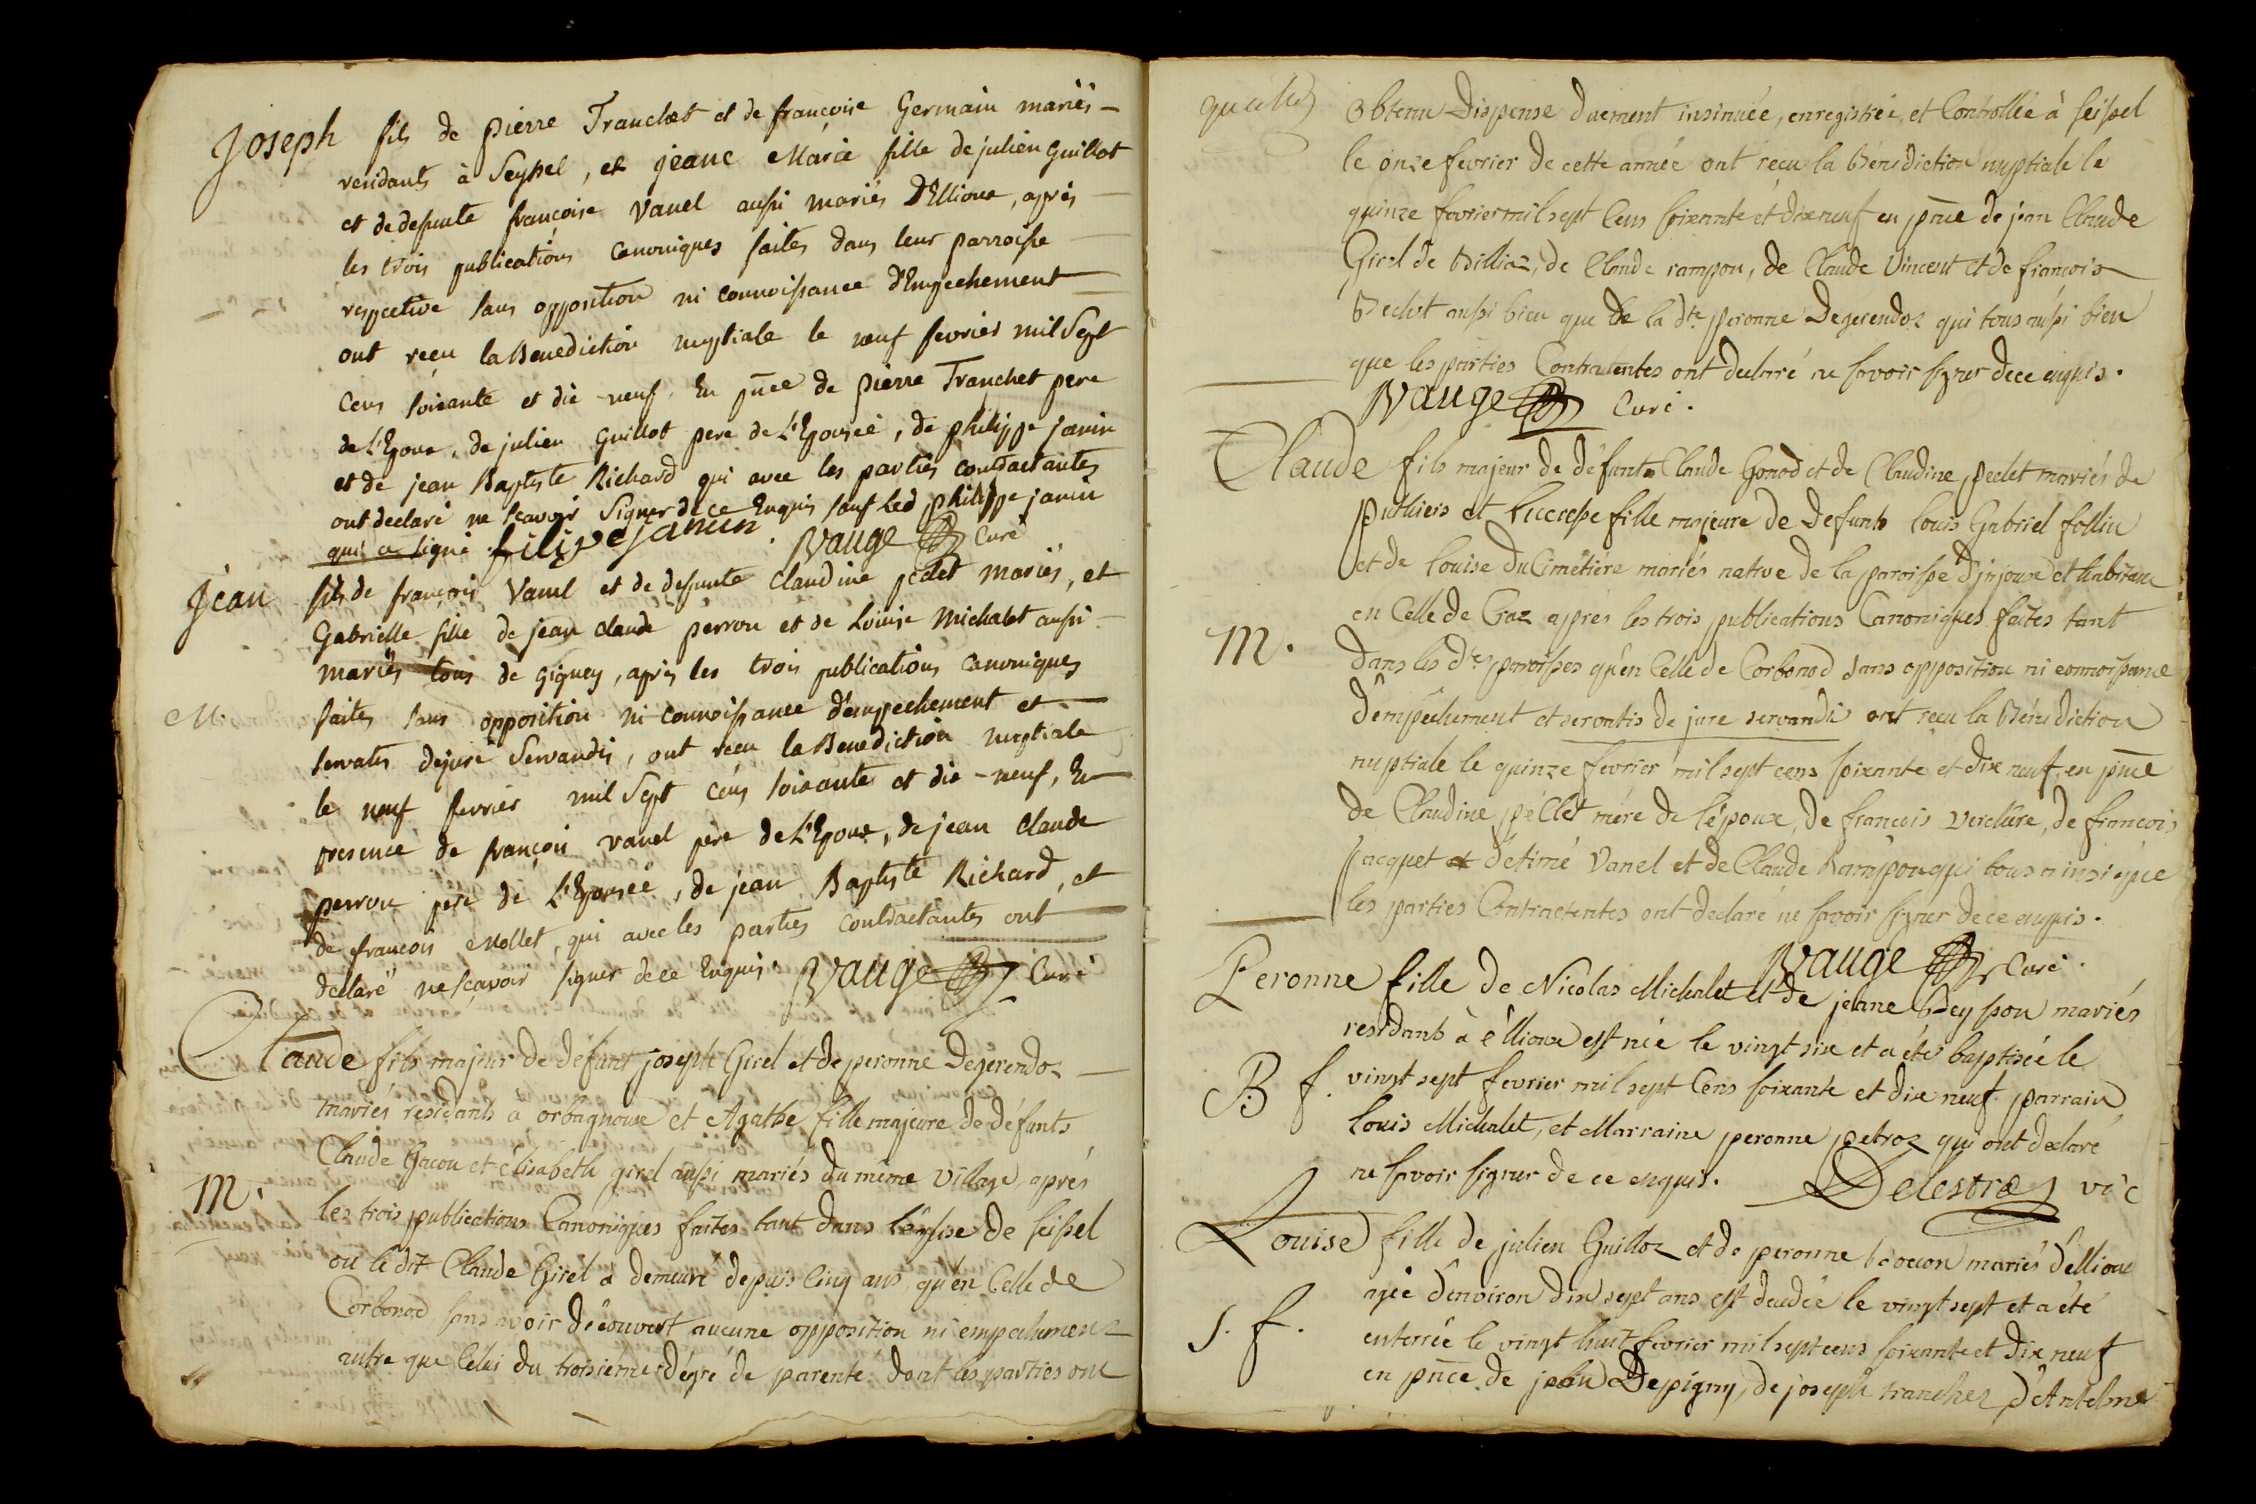 Joseph fils de pierre Tranchet et de françoise Germain mariés
residants à Seyssel, et jeane Marie fille de julien Guillot
et de defunte françoise Vanel aussi mariés D'Elliouz, après
les trois publications canoniques faites dans leur parroisse
respective sans opposition ni connoissance d'Empechement
ont reçu la Benediction nuptiale le neuf fevrier mil Sept
Cens soixante et dix-neuf. En pnce de pierre Tranchet pere
de L'Epoux, de julien Guillot pere de L'Epousée, de philippe janin
et de jean Baptiste Richard qui avec les parties contractantes
ont declaré ne sçavoir Signer de ce Enquis sauf led philippe janin
qui a signé. filipe janin. Vauge Curé
Jean fils de françois Vanel et de defunte Claudine péclet mariés, et
Gabrielle fille de jean claude perron et de Louise Michalet aussi
mariés tous de Gigney, après les trois publications canoniques
M. faites sans opposition ni connoissance d'empechement et
servatis de jure Servandis, ont reçu la Benediction nuptiale
le neuf fevrier mil Sept céns soixante et dix-neuf, En
presence de françois vanel père de L'Epoux, de jean claude
perron pere de L'Epousée, de jean Baptiste Richard, et
de francois Mollet, qui avec les parties contractantes ont
declaré ne sçavoir signer de ce Enquis. Vauge Curé
Claude fils majeur de défunt joseph Girel et de peronne Degerendoz
mariés residants à orbagnoux et Agathe fille majeure de défunts
Claude Jacou et élisabeth girel aussi mariés du même village, aprés
M. les trois publications Canoniques faites tant dans l'église de seissel
ou le dit Claude Girel a demeuré depuis Cinq ans, qu'en Celle de
Corbonod sans avoir découvert aucune opposition ni empechement
autre que Celui du troisieme dégré de parenté dont les parties ont
obtenu Dispense duement insinuée, enregistrée, et Controllée à seissel
le onze fevrier de cette année ont reçu la Bénédiction nuptiale le
quinze fevrier mil sept Cens soixante et dix neuf en pnce de jean Claude
Girel de Billiaz, de Claude rampon, de Claude Vincent et de francois
Beclet aussi bien que de la dte peronne Degerendoz qui tous aussi bien
que les parties Contractentes ont declaré ne savoir signer de ce enquis.
Vauge Curé.
Claude fils majeur de défunt Claude Gonod et de Claudine peclet mariés de
puthiers et fille majeure de defunts Louis Gabriel follin
et de Louise du Cimétiére mariés native de la paroisse d'injoux et habitante
en Celle de Craz après les trois publications Canoniques faites tant
M. dans les dtes paroisses qu'en Celle de Corbonod sans opposition ni connoissance
d'empêchement et servatis de jure servandis ont reçu la Bénédiction
nuptiale le quinze fevrier mil sept cens soixante et dix neuf, en pnce
de Claudine péclet mére de l'époux, de francois verchere, de francois
jacquet et d'etimé Vanel et de Claude Rampon qui tous ainsi que
les parties Contractentes ont declaré ne savoir signer de ce enquis.
Vauge Curé.
Peronne fille de Nicolas Michalet et de jeane Beysson mariés
residants à élliouz est née le vingt six et a été baptisée le
B f. vingt sept fevrier mil sept Cens soixante et dix neuf. parrain
Louis Michalet, et Marraine peronne petroz qui ont declaré
ne savoir signer de ce enquis. Delestraz vic
Louise fille de julien Guilloz et de peronne mariés d'elliouz
agée d'environ dix sept ans est decedée le vingt sept et a été
S. f. enterrée le vingt huit fevrier mil sept cens soixante et dix neuf
en pnce de jean Depigny, de joseph tranchez d'Antelme